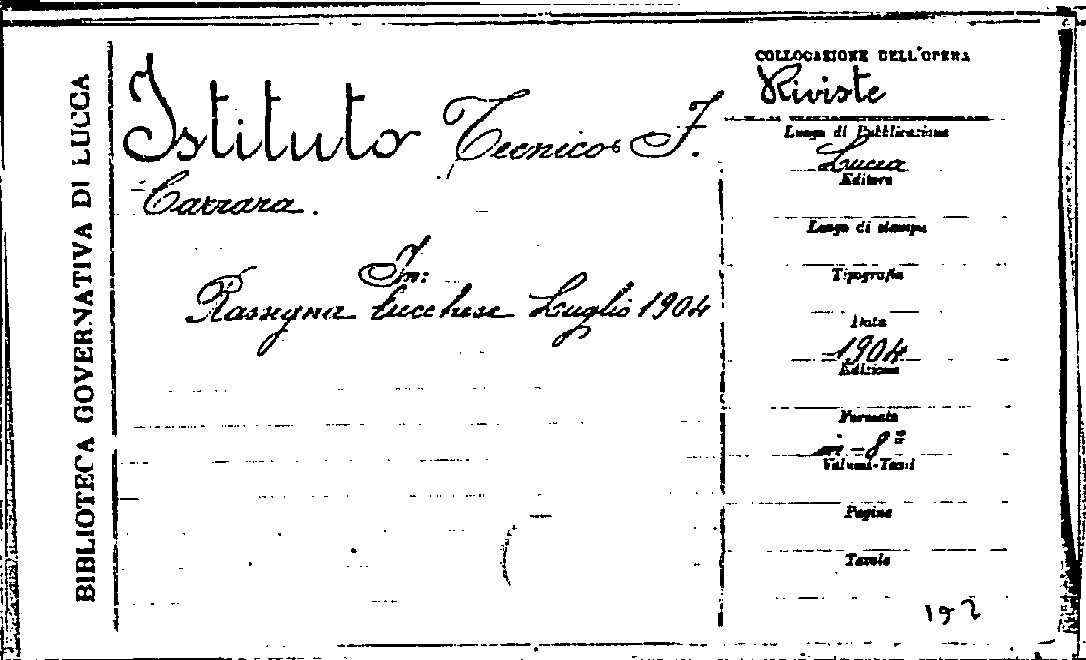 BIBLIOTECA GOVERNATIVA DI LUCCA
Istituto Tecnico F.
Carrara.
In:
Rassegna Lucchese Luglio 1904
COLLOCAZIONE DELL'OPERA
Riviste
Luogo di Pubblicazione
Lucca
Editore
Luogo di stampa
Tipografia
Data
1904
Edizione
Formato
in-8º
Volumi-Tomi
Pagine
Tavole
192